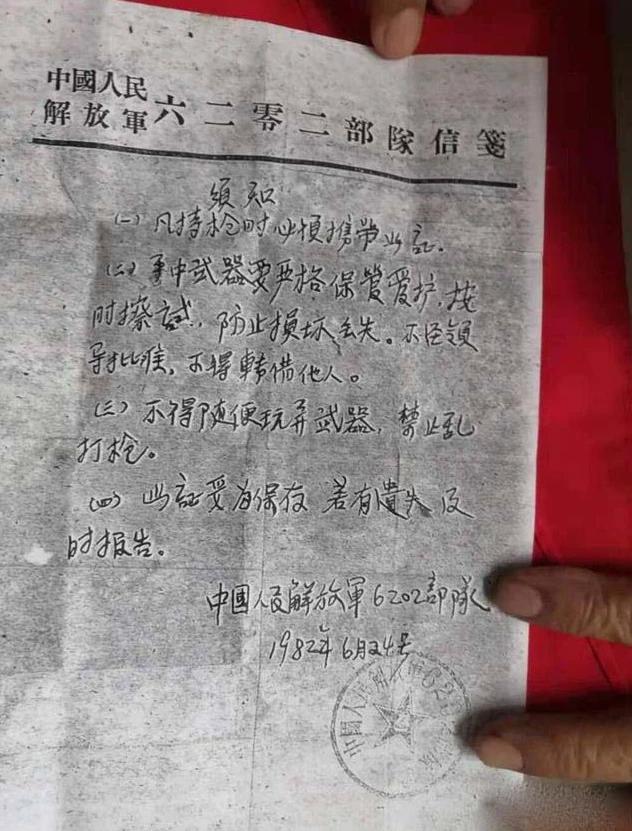 中國人民
解放軍六二零二部隊信箋
須知
(一)凡持枪时必須攜带此証。
(二)手中武器要严格保管爱护,按
时擦試,防止損坏丢失。不经領
导批准,不得轉借他人。
(三)不得随便玩弄武器,禁止乱
打枪。
(四)此証妥为保存 若有遺失及
时报告。
中國人民解放軍6202部隊
1982年6月24号
中國人民解放軍62